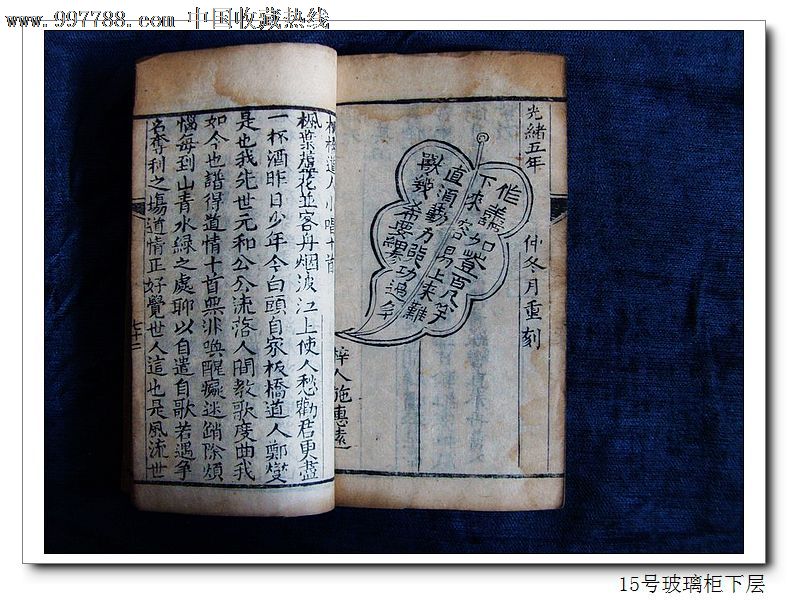 www.997788.com 中国收藏热线
光緒五年 仲冬月重刻
作善如登百尺竿
下來容易上來難
直須勤力
梓人施惠遠
板橋道人小唱十首
楓葉蘆花並客舟烟波江上使人愁勸君更盡
一杯酒昨日少年今白頭自家板橋道人鄭燮
是也我先世元和公公流落人間教歌度曲我
如今也譜得道情十首無非喚醒癡迷銷除煩
惱每到山青水綠之處聊以自遣自歌若遇爭
名奪利之場道情正好覺世人這也是風流世
七十二
15号玻璃柜下层